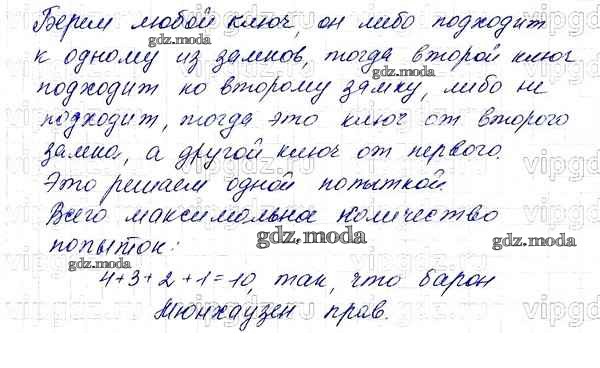 Берем любой ключ, он либо подходит
к одному из замков, тогда второй ключ
подходит ко второму замку, либо не
подходит, тогда это ключ от второго
замка, а другой ключ от первого.
Это решаем одной попыткой.
Всего максимальна количество
попыток:
4+3+2+1=10, так, что барон
Мюнхаузен прав.
gdz.moda
gdz.moda
gdz.moda
gdz.moda
gdz.moda
gdz.moda
gdz.moda